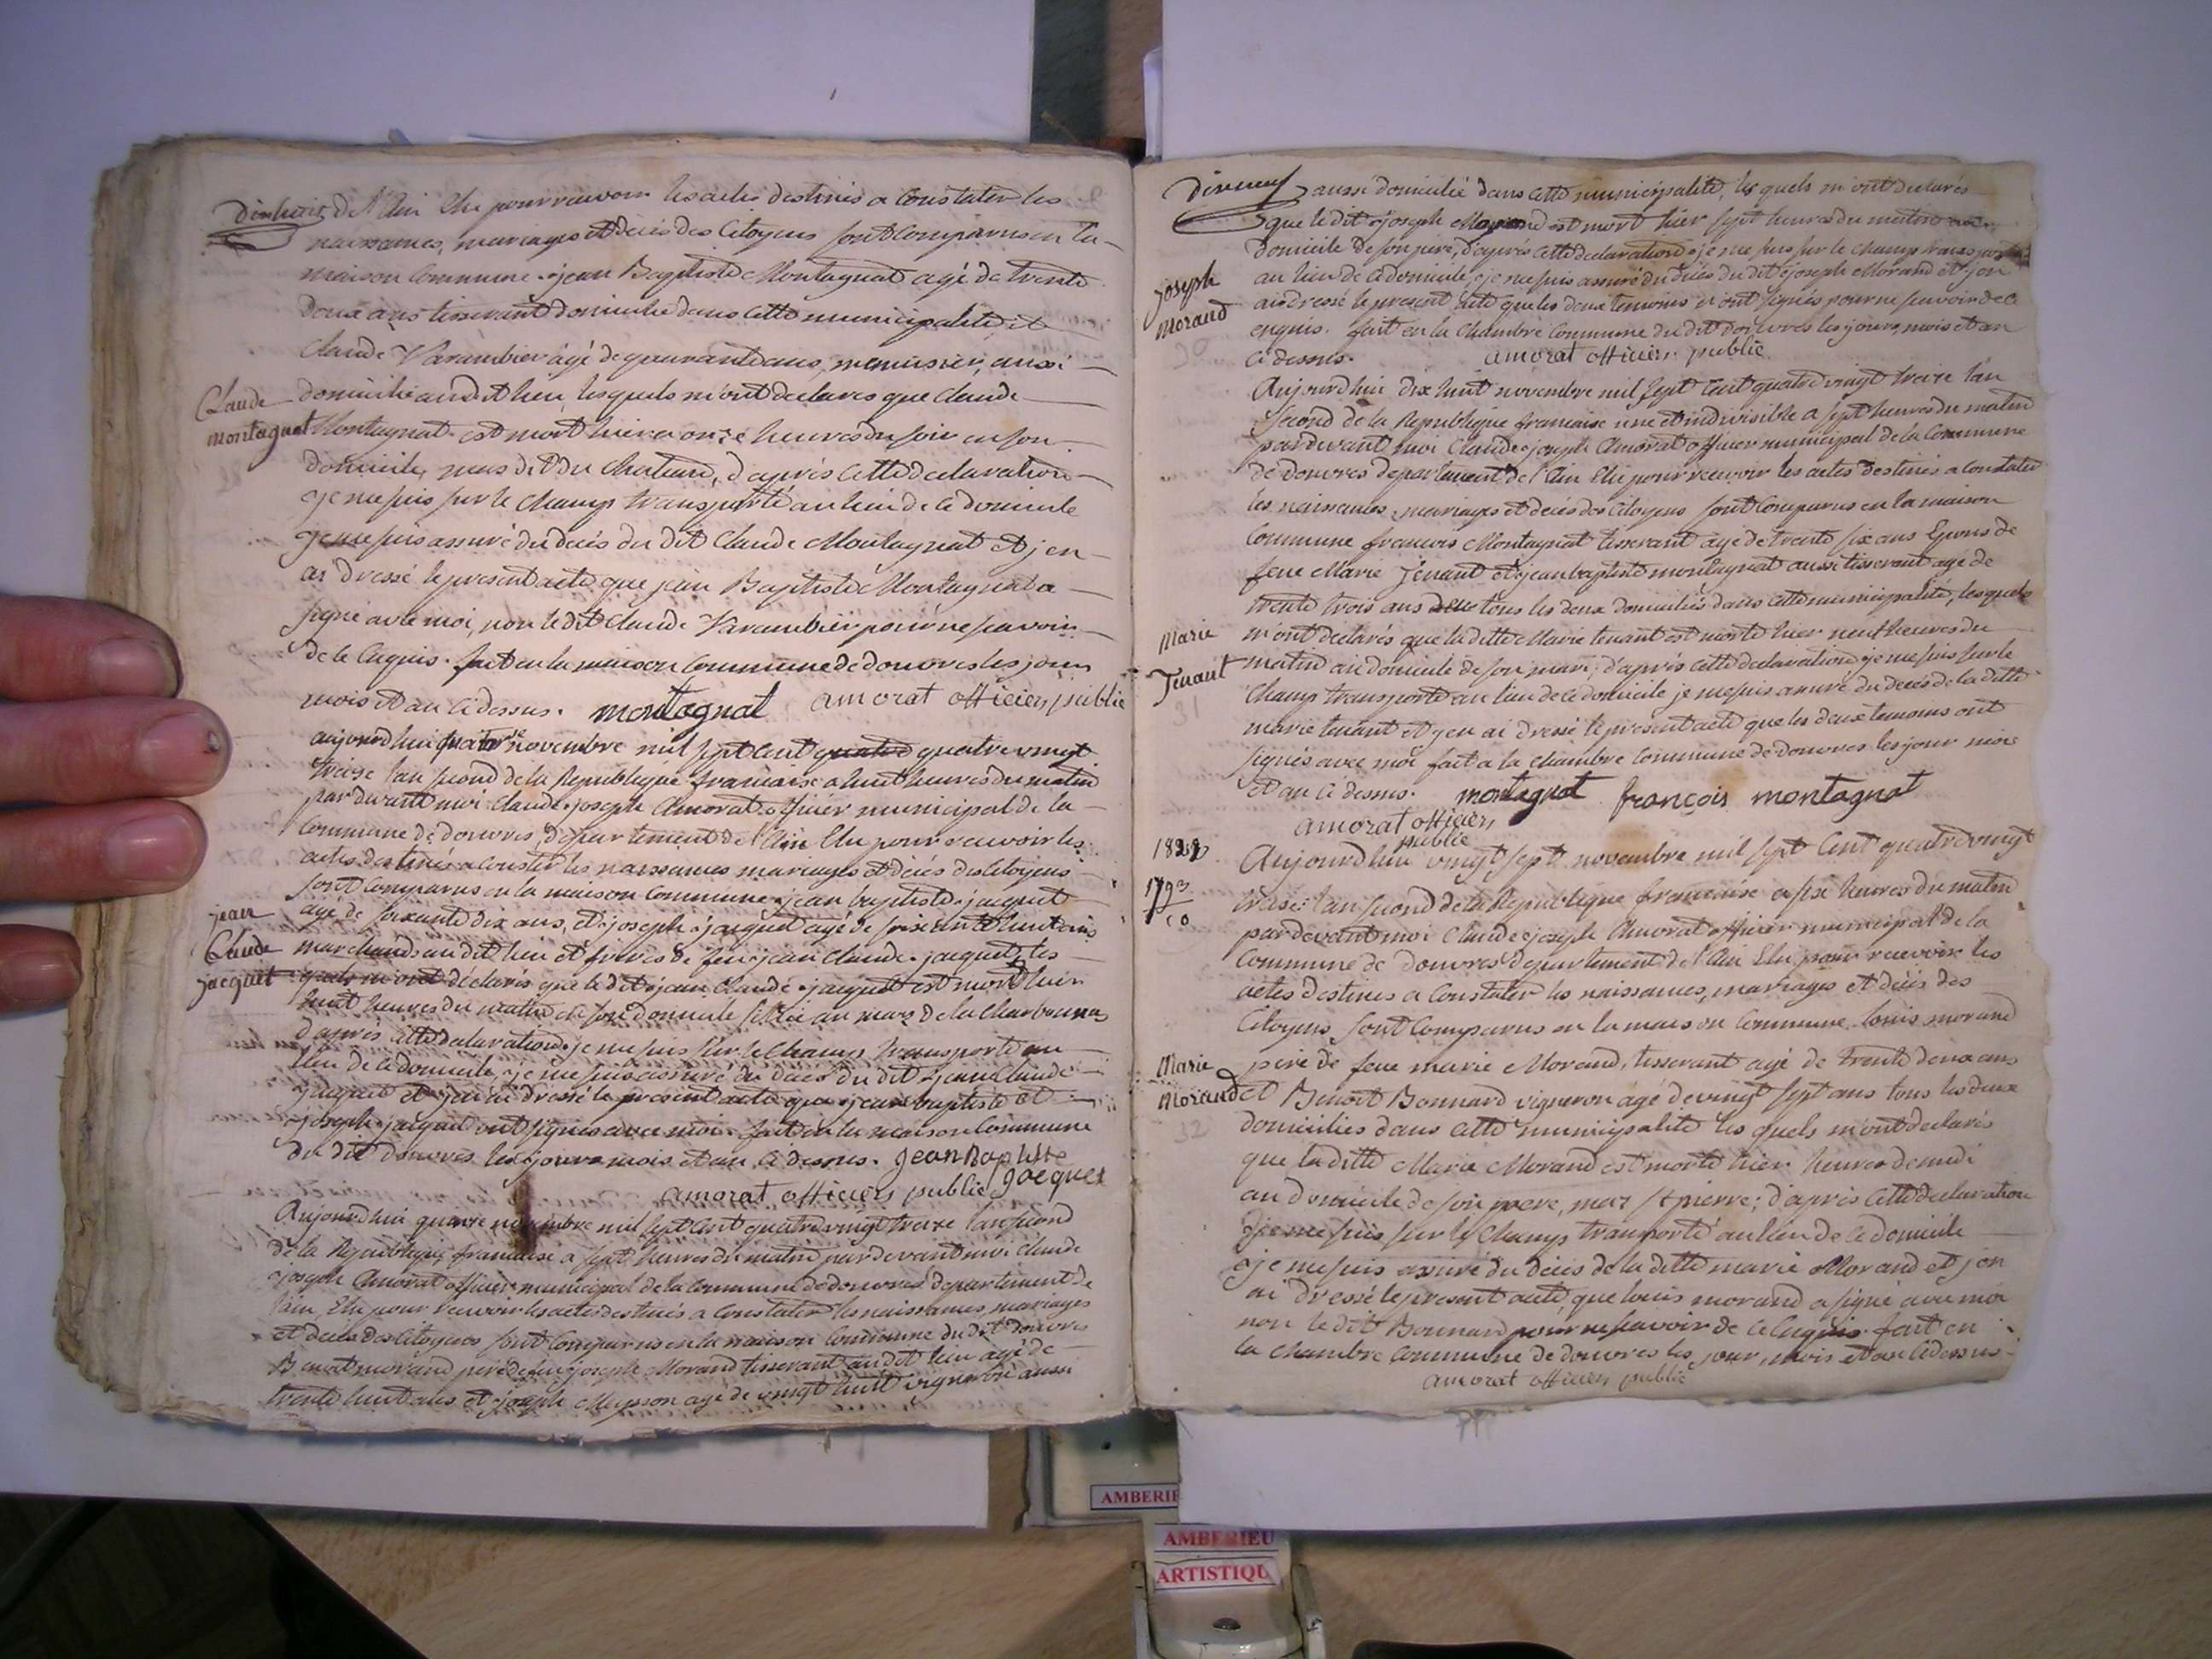 dixhuit de l'Ain Elu pour recevoir les actes destinés a Constater les
naissances, mariages et décès des Citoyens sont Comparus en la
maison Commune jean Baptiste Montagnat agé de trente
deux ans tisserant domicilié dans cette municipalité et
Claude Varambier âgé de quarante ans, menuisier, aussi
Claude
montagnat
domicilié audit lieu, lesquels m'ont declarés que Claude
Montagnat est mort hier a onze heures du soir en son
domicile, mas dit du Chateau, d'après cette declaration
je me suis sur le Champ transporté au lieu de ce domicile
je me suis assuré du decès du dit Claude Montagnat et j'en
ai dressé le present acte que jean Baptiste Montagnat a
signé avec moi, non le dit Claude Varambier pour ne savoir
de ce Enquis. fait en la maison Commune de douvres les jour
mois et an ci dessus. montagnat amorat officier public
aujourd'hui novembre mil sept cent quatre vingt
treize l'an second de la Republique francaise a huit heures du matin
par devant moi Claude joseph Amorat officier municipal de la
Commune de douvres, departement de l'Ain Elu pour recevoir les
actes destinés a constater les naissances mariages et décès des Citoyens
sont Comparus en la maison Commune jean baptiste jacquet
jean
Claude
jacquet
agé de soixante dix ans, et joseph jacquet agé de soixante huit ans
marchands au dit lieu et freres de feu jean Claude jacquet, les
quels m'ont déclarés que le dit jean Claude jacquet est mort hier
huit heures du matin en son domicile situé au mas de la Charbonnas
d'après cette declaration je me suis sur le Champ transporté au
lieu de ce domicile, je me suis assuré du décès du dit jean Claude
jacquet et j'en ai dressé le present acte que jean baptiste et
joseph jacquet ont signés avec moi. fait en la maison Commune
du dit douvres les jours mois et an ci dessus. Jean Baptiste
amorat officier public Jacquet
Aujourd'hui novembre mil sept cent quatre vingt treize l'an second
de la Republique francaise a sept heures du matin par devant moi Claude
joseph Amorat officier municipal de la Commune de douvres departement de
l'ain, Elu pour recevoir les actes destinés a Constater les naissances, mariages
et décès des Citoyens sont Comparus en la maison Commune du dit douvres
Benoit morand pere de feu joseph Morand tisserant au dit lieu agé de
trente huit ans et joseph agé de vingt huit vigneron aussi
dixneuf aussi domicilié dans cette municipalité, les quels m'ont declarés
que le dit joseph Morand est mort hier sept heures du matin au
domicile de son pere, d'après cette declaration je me suis sur le champ transporté
joseph
Morand
30
au lieu de ce domicile, je me suis assuré du décès du dit joseph Morand et j'en
ai dressé le present acte que les deux temoins n'ont signés pour ne savoir de ce
enquis. fait en la Chambre Commune du dit douvres les jours, mois et an
ci dessus. amorat officier public
Aujourd'hui dix huit novembre mil sept cent quatre vingt treize l'an
second de la Republique francaise une et indivisible a sept heures du matin
par devant moi Claude joseph Amorat officier municipal de la Commune
de douvres departement de l'Ain Elu pour recevoir les actes destinés a Constater
les naissances, mariages et décès des Citoyens sont Comparus en la maison
Commune francois Montagnat tisserant agé de trente six ans Epous de
feue Marie Tenant et jean baptiste montagnat aussi tisserant agé de
trente trois ans tous les deux domiciliés dans cette municipalité, lesquels
Marie
Tenant
31
m'ont declarés que la ditte Marie tenant est morte hier neuf heures du
matin au domicile de son mari, d'après cette declaration je me suis sur le
Champ transporté au lieu de ce domicile je me suis assuré du décès de la ditte
marie tenant et j'en ai dressé le present acte que les deux temoins ont
signés avec moi fait a la chambre Commune de douvres les jour mois
et an ci dessus. montagnat françois montagnat
amorat officier
public
1793
Aujourd'hui vingt sept novembre mil sept Cent quatre vingt
treise l'an second de la Republique francaise a six heures du matin
par devant moi Claude joseph Amorat officier municipal de la
Commune de douvres departement de l'Ain Elu pour recevoir les
actes destinés a Constater les naissances, mariages et décès des
Citoyens sont Comparus en la maison Commune louis morand
Marie
Morand
32
pere de feue marie Morand, tisserant agé de trente deux ans
et Benoit Bonnard vigneron agé de vingt sept ans tous les deux
domiciliés dans cette municipalité les quels m'ont declarés
que la ditte Marie Morand est morte hier heures de midi
au domicile de son pere, mas st pierre; d'après cette declaration
je me suis sur le Champ transporté au lieu de ce domicile
je me suis assuré du décès de la ditte marie Morand et j'en
ai dressé le present acte, que louis morand a signé avec moi
non le dit Bonnard pour ne savoir de ce Enquis. fait en
la chambre Commune de douvres les jour, mois et an ci dessus
amorat officier public
AMBERIE
AMBERIEU
ARTISTIQU